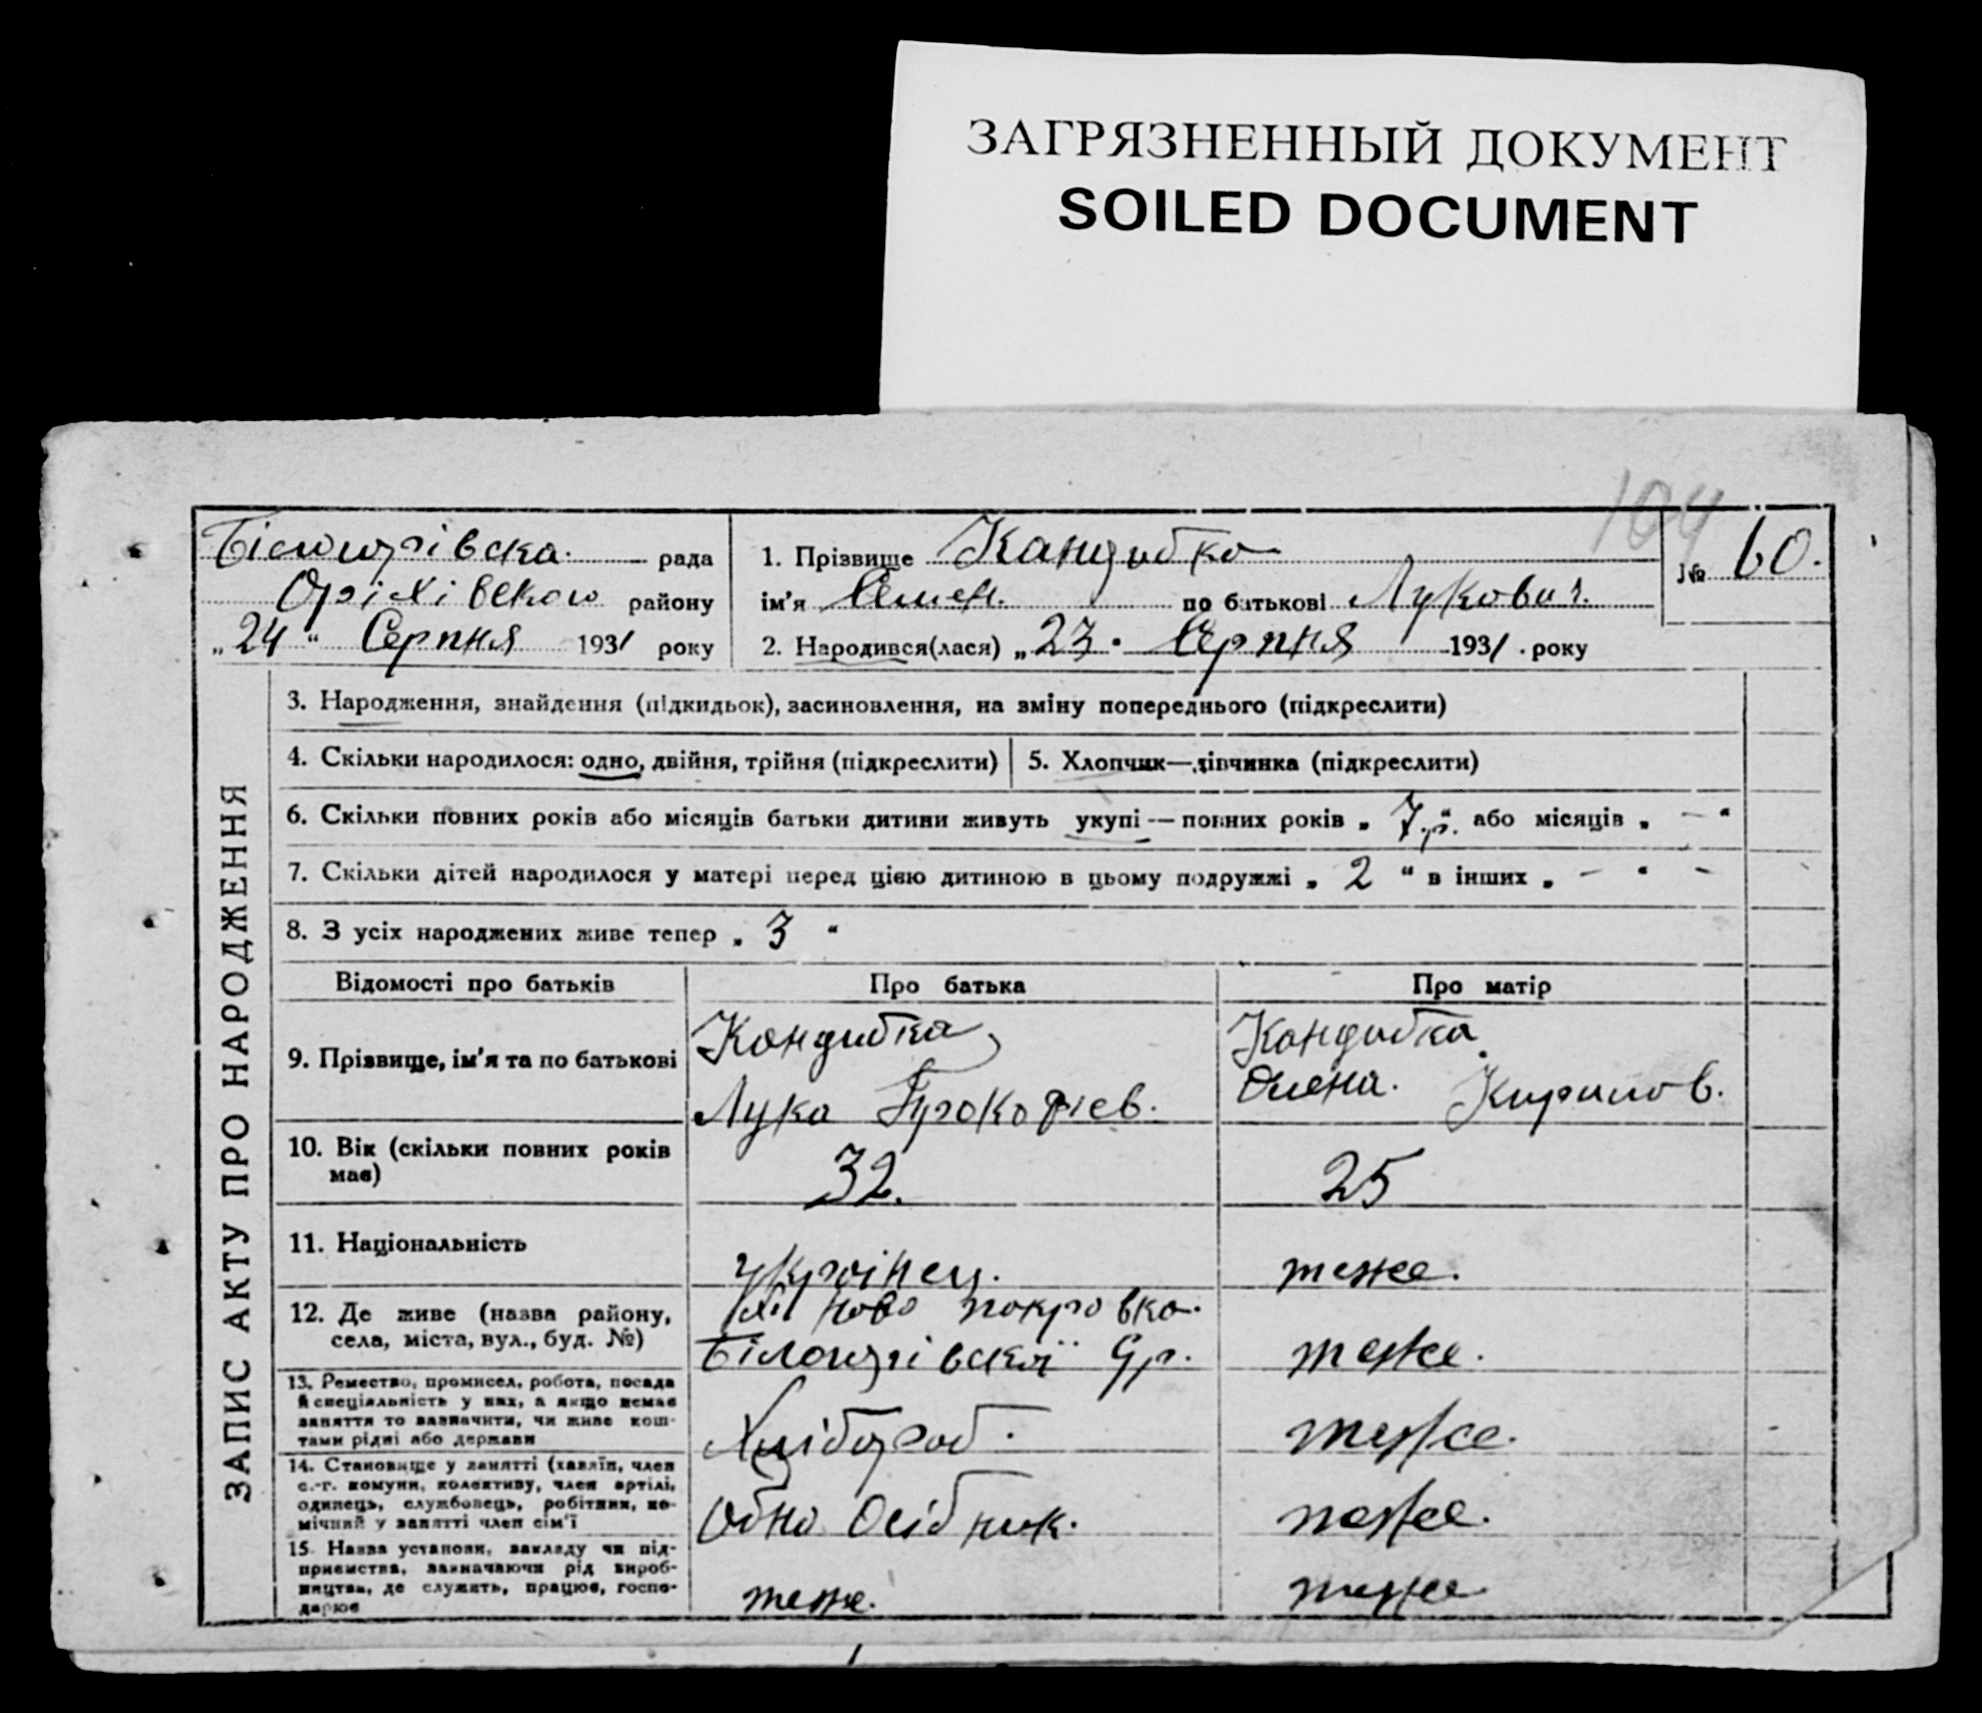 ЗАГРЯЗНЕННЫЙ ДОКУМЕНТ
SOILED DOCUMENT
104
Білогорівска рада
Оріхівского району
„24“ Серпня 1931 року
1. Прізвище Кандибка
ім'я Семен. по батькові Лукович.
2. Народився(лася) „23. Серпня 1931. року
№ 60.
ЗАПИС АКТУ ПРО НАРОДЖЕННЯ
3. Народження, знайдення (підкидьок), засиновлення, на зміну попереднього (підкреслити)
4. Скільки народилося: одно, двійня, трійня (підкреслити)
5. Хлопчик—дівчинка (підкреслити)
6. Скільки повних років або місяців батьки дитини живуть укупі — повних років „ 7 р. “ або місяців „ — “
7. Скільки дітей народилося у матері перед цією дитиною в цьому подружжі „ 2 “ в інших „ — “ —
8. З усіх народжених живе тепер „ 3 “
Відомості про батьків Про батька Про матір
9. Прізвище, ім'я та по батькові
Кондибка,
Лука Прокофіев.
Кондибка
Олена. Кирилов.
10. Вік (скільки повних років
має)
32.
25
11. Національність
українец.
теже.
12. Де живе (назва району,
села, міста, вул., буд. №)
Ново покровка.
Білогорівскої
теже.
13. Ремество, промисел, робота, посада
й спеціяльність у них, а якщо немає
заняття то зазначити, чи живе кош-
тами рідні або держави
Хлібороб.
теже.
14. Становище у занятті (хазяїн, член
с.-г. комуни, колективу, член артілі,
одинець, службовець, робітник, по-
мічний у занятті член сім'ї
Одно Осібник.
теже.
15. Назва установи, закладу чи під-
приємства, зазначаючи рід вироб-
ництва, де служить, працює, госпо-
дарює
теже.
теже